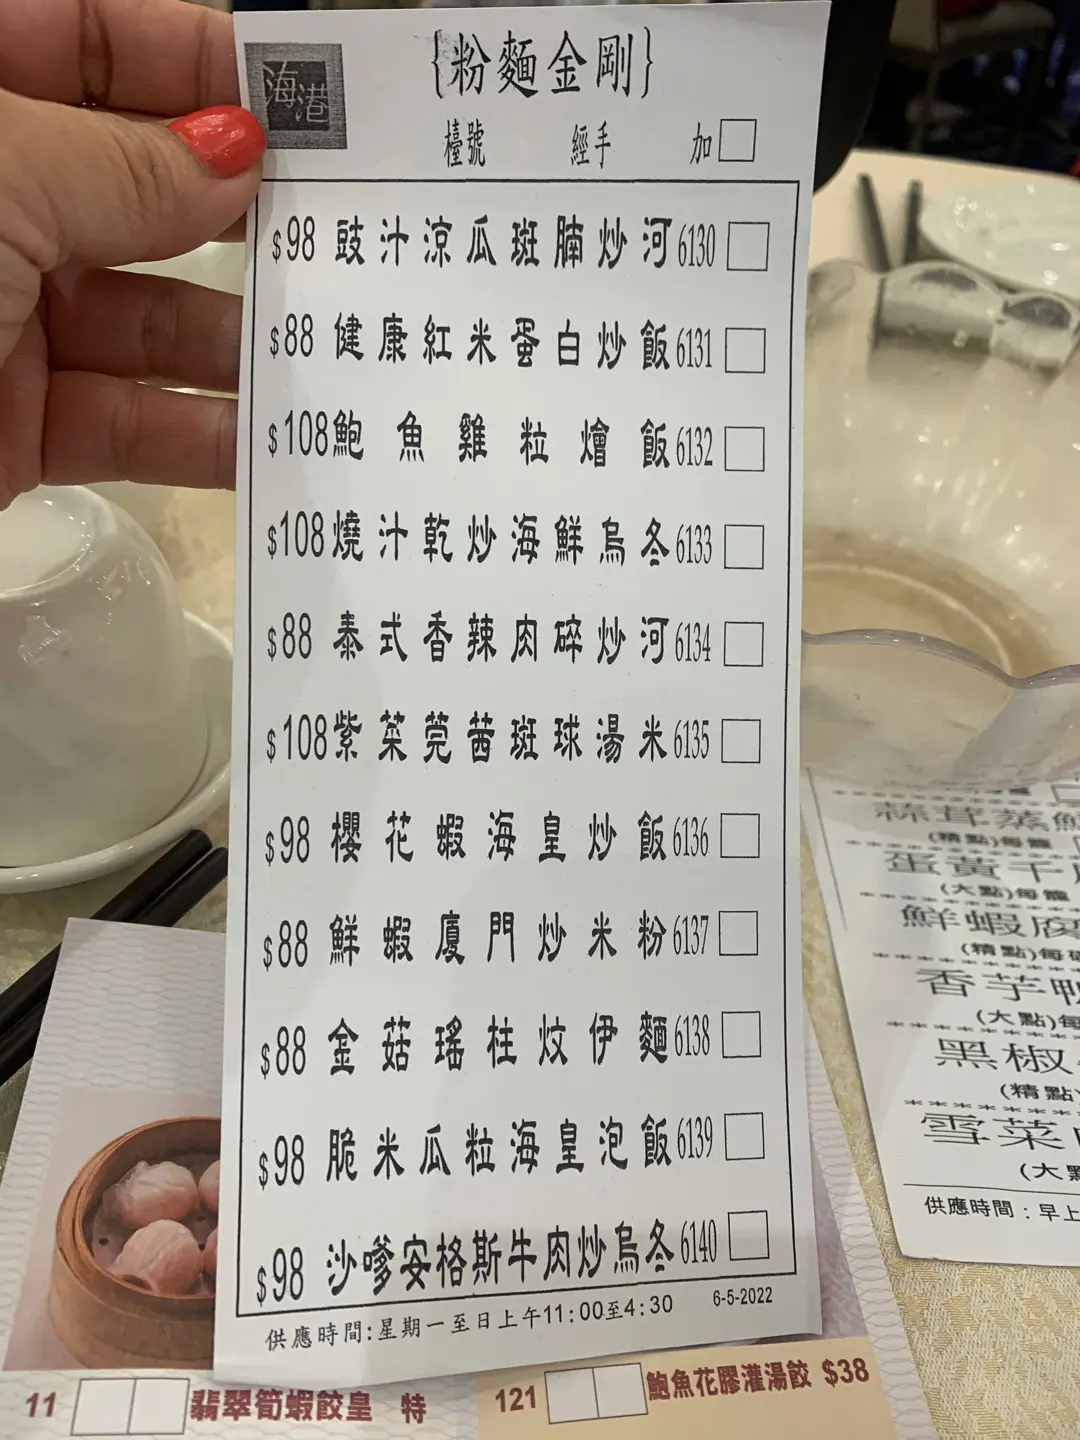 海港
{粉麵金剛}
檯號 經手 加
$98 豉汁涼瓜斑腩炒河 6130
$88 健康紅米蛋白炒飯 6131
$108 鮑魚雞粒燴飯 6132
$108 燒汁乾炒海鮮烏冬 6133
$88 泰式香辣肉碎炒河 6134
$108 紫菜莞茜斑球湯米 6135
$98 櫻花蝦海皇炒飯 6136
$88 鮮蝦廈門炒米粉 6137
$88 金菇瑤柱炆伊麵 6138
$98 脆米瓜粒海皇泡飯 6139
$98 沙嗲安格斯牛肉炒烏冬 6140
供應時間:星期一至日上午11:00至4:30 6-5-2022
11 翡翠筍蝦餃皇 特
121 鮑魚花膠灌湯餃 $38
蒜茸蒸
(精點)每籠
蛋黃千
(大點)每籠
鮮蝦腐
(精點)每
香芋
(大點)每
黑椒
(精點)
雪菜
(大
供應時間:早上